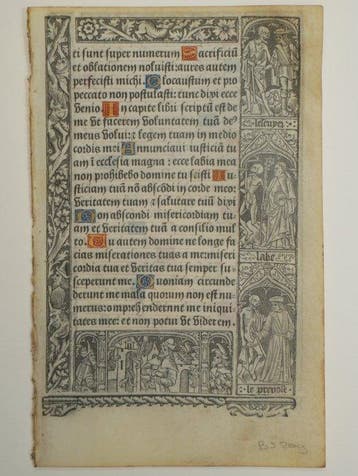 ti sunt super numerum Sacrificiũ
et oblationem noluisti: aures autem
perfecisti michi. Olocaustum et pro
peccato non postulasti: tunc dixi ecce
venio. In capite libri scriptũ est de
me vt facerem voluntatem tuã de⁹
meus volui: et legem tuam in medio
cordis mei Annunciaui iusticiã tu
am ĩ ecclesia magna: ecce labia mea
non prohibebo domine tu scisti Iu
sticiam tuã nõ abscõdi in corde meo:
veritatem tuam et salutare tuũ dixi
Non abscondi misericordiam tu
am et veritatem tuam a consilio mul
to. Tu autem domine ne longe fa
cias miserationes tuas a me: miseri
cordia tua et veritas tua semper su-
sceperunt me. Quoniam circunde
derunt me mala quorum non est nu-
merus: comprehenderunt me iniqui
tates mee: et non potui vt viderem.
labe
le prevost